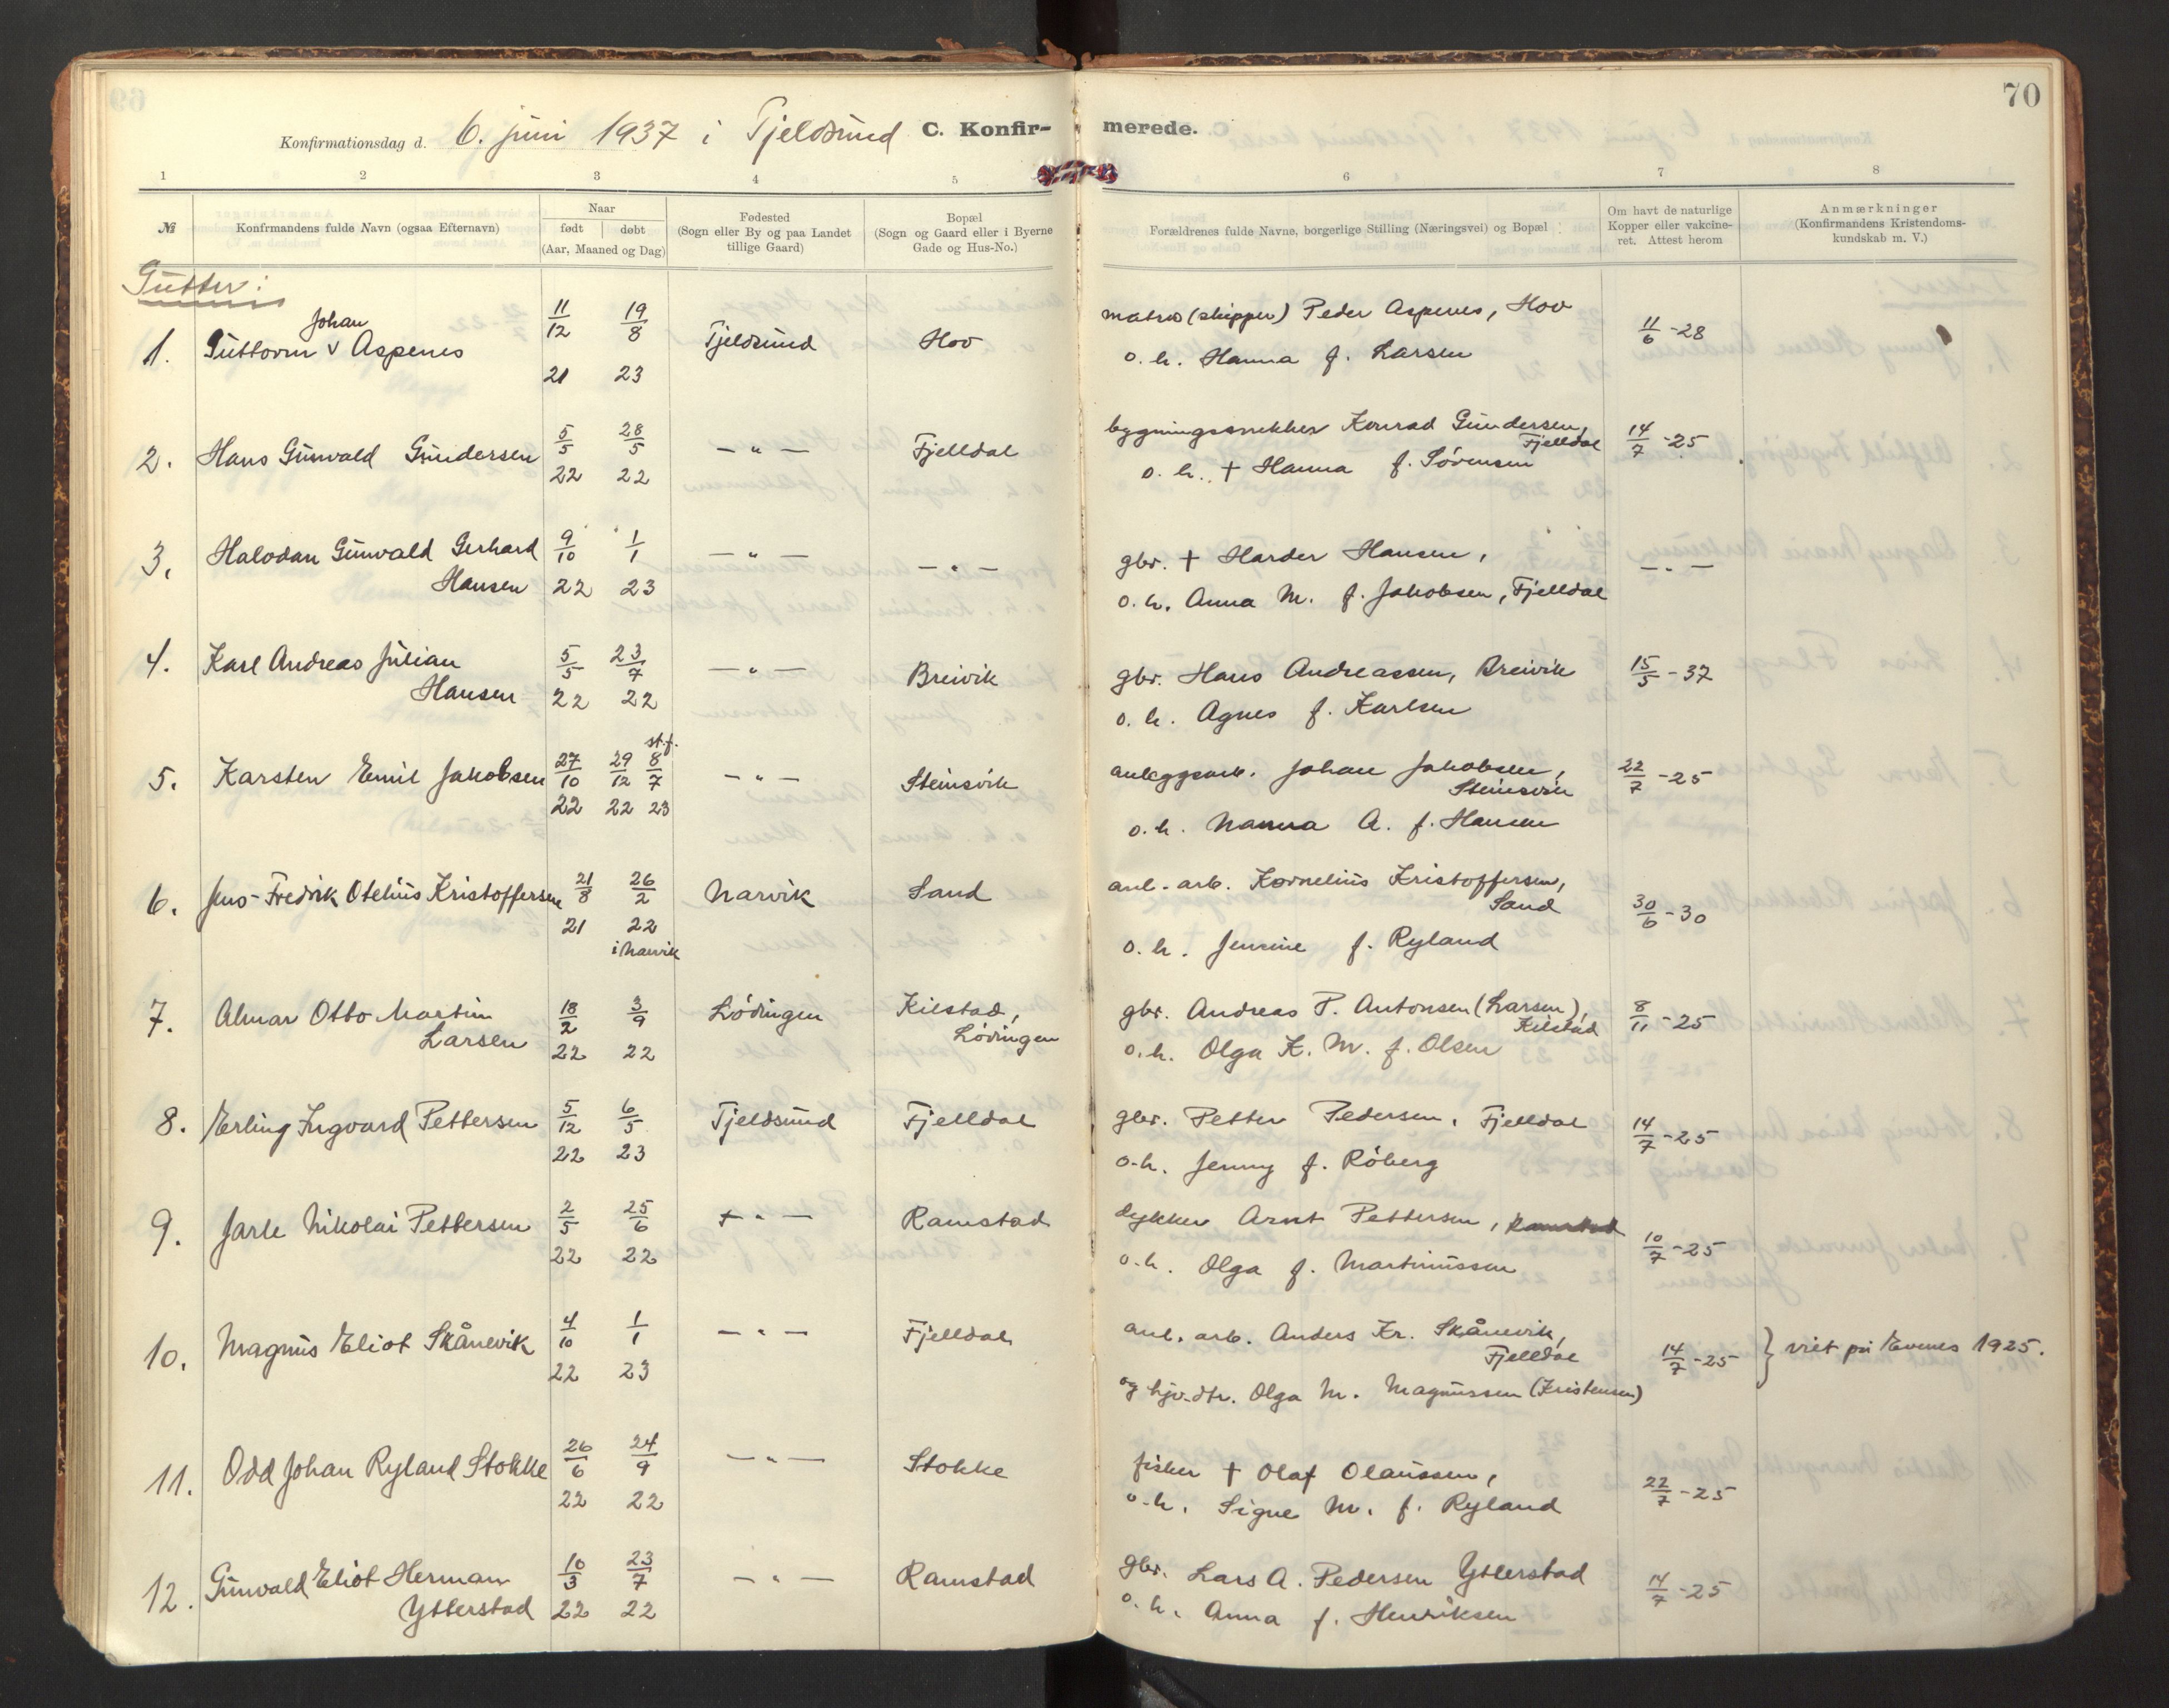 70
Konfirmationsdag d. 6. juni 1937 i Tjeldsund C. Konfirmerede.
1 2 3 4 5 6 7 8
№ Konfirmandens fulde Navn (ogsaa Efternavn) Naar født døbt (Aar, Maaned og Dag) Fødested (Sogn eller By og paa Landet tillige Gaard) Bopæl (Sogn og Gaard eller i Byerne Gade og Hus-No.) Forældrenes fulde Navne, borgerlige Stilling (Næringsvei) og Bopæl Om havt de naturlige Kopper eller vakcineret. Attest herom Anmærkninger (Konfirmandens Kristendomskundskab m. V.)
Gutter:
Johan 11/12 19/8 matros (skipper) Peder Aspenes, Hov
1. Guttorm v Aspenes Tjeldsund Hov 11/6-28
21 23 o. h. Hanna f. Larsen
5/5 28/5 bygningssnekker Konrad Gundersen,
2. Hans Gunvald Gundersen -"- Fjelldal Fjelldal 14/7-25
22 22 o. h. + Hanna f. Sørensen
3. Halvdan Gunvald Gerhard 9/10 1/1 -"- -"- gbr. + Harder Hansen, -"-
Hansen 22 23 o. h. Anna M. f. Jakobsen, Fjelldal
4. Karl Andreas Julian 5/5 23/7 -"- Breivik gbr. Hans Andreassen, Breivik 15/5-37
Hansen 22 22 o. h. Agnes f. Karlsen
st.f.
5. Karsten Emil Jakobsen 27/10 29/12 8/7 -"- Steinsvik anleggsarb. Johan Jakobsen, 22/7-25
Steinsvik
22 22 23 o. h. Nanna A. f. Hansen
6. Jens-Fredrik Otelius Kristoffersen 21/8 26/2 Narvik Sand anl.-arb. Kornelius Kristoffersen,
Sand 30/6-30
21 22 o. h. Jensine f. Ryland
i Narvik
7. Almar Otto Martin 18/2 3/9 Lødingen Kilstad, gbr. Andreas P. Antonsen (Larsen), 8/11-25
Larsen Lødingen Kilstad
22 22 o. h. Olga K. M. f. Olsen
8. Erling Ingvard Pettersen 5/12 6/5 Tjeldsund Fjelldal gbr. Petter Pedersen, Fjelldal 14/7-25
22 23 o. h. Jenny f. Røberg
9. Jarle Nikolai Pettersen 2/5 25/6 -"- Ramstad dykker Arnt Pettersen, Ramstad 10/7-25
22 22 o. h. Olga f. Martinussen
10. Magnus Eliot Skånevik 4/10 1/1 -"- Fjelldal anl. arb. Anders Kr. Skånevik,
Fjelldal 14/7-25 } vist på Evenes 1925.
22 23 og hjv. dtr. Olga M. Magnussen (Kristensen)
11. Odd Johan Ryland Stokke 26/6 24/9 -"- Stokke fisker + Olaf Olaussen, 22/7-25
22 22 o. h. Signe M. f. Ryland
12. Gunvald Eliot Herman 10/3 23/7 -"- Ramstad gbr. Lars A. Pedersen Ytterstad 14/7-25
Ytterstad 22 22 o. h. Anna f. Henriksen